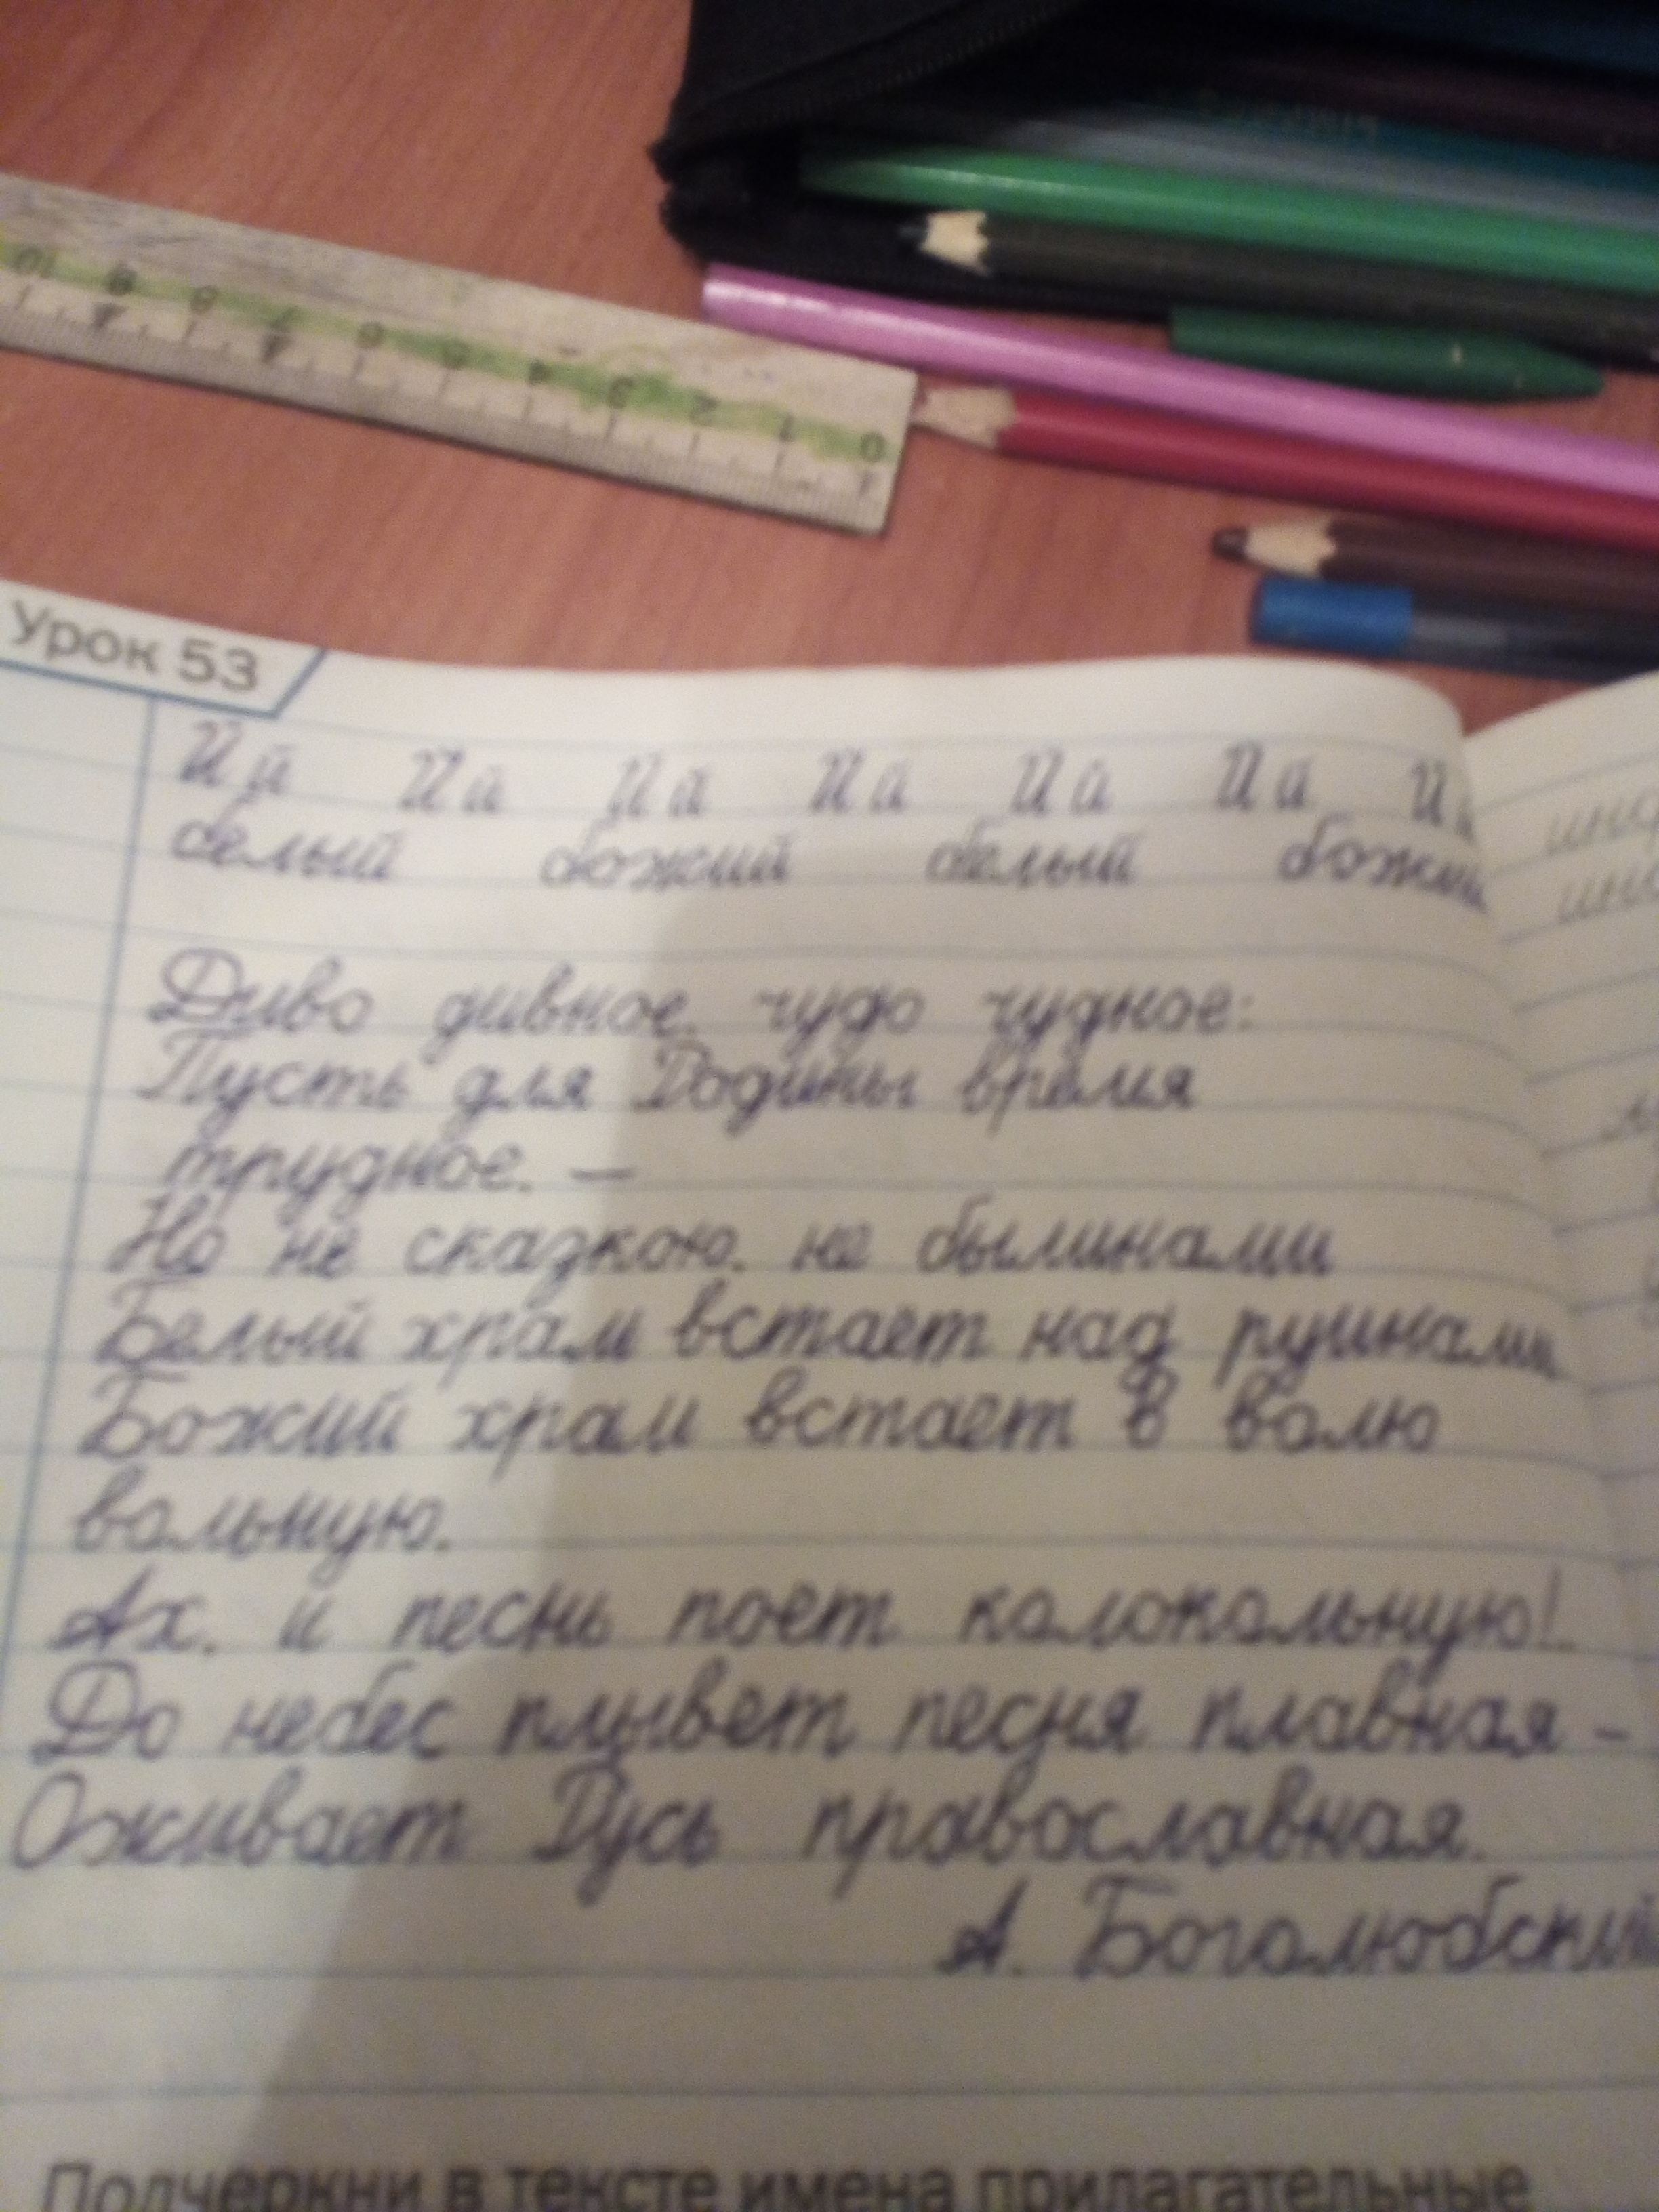 Урок 53
Й й Й й Й й Й й Й й Й й Й й
белый божий белый божий
Диво дивное, чудо чудное:
Пусть для Родины время
трудное, —
Но не сказкою, не былинами
Белый храм встает над руинами
Божий храм встает в волю
вольную.
Ах, и песнь поет колокольную!
До небес плывет песня плавная –
Оживает Русь православная.
А. Боголюбский
Подчеркни в тексте имена прилагательные